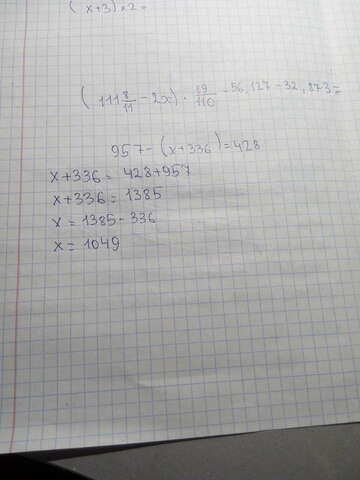 (x+3)·x2=
(111 8/11 - 2x) · 19/110 - 56,127 - 32,873=
957-(x+336)=428
x+336= 428+957
x+336= 1385
x= 1385-336
x= 1049